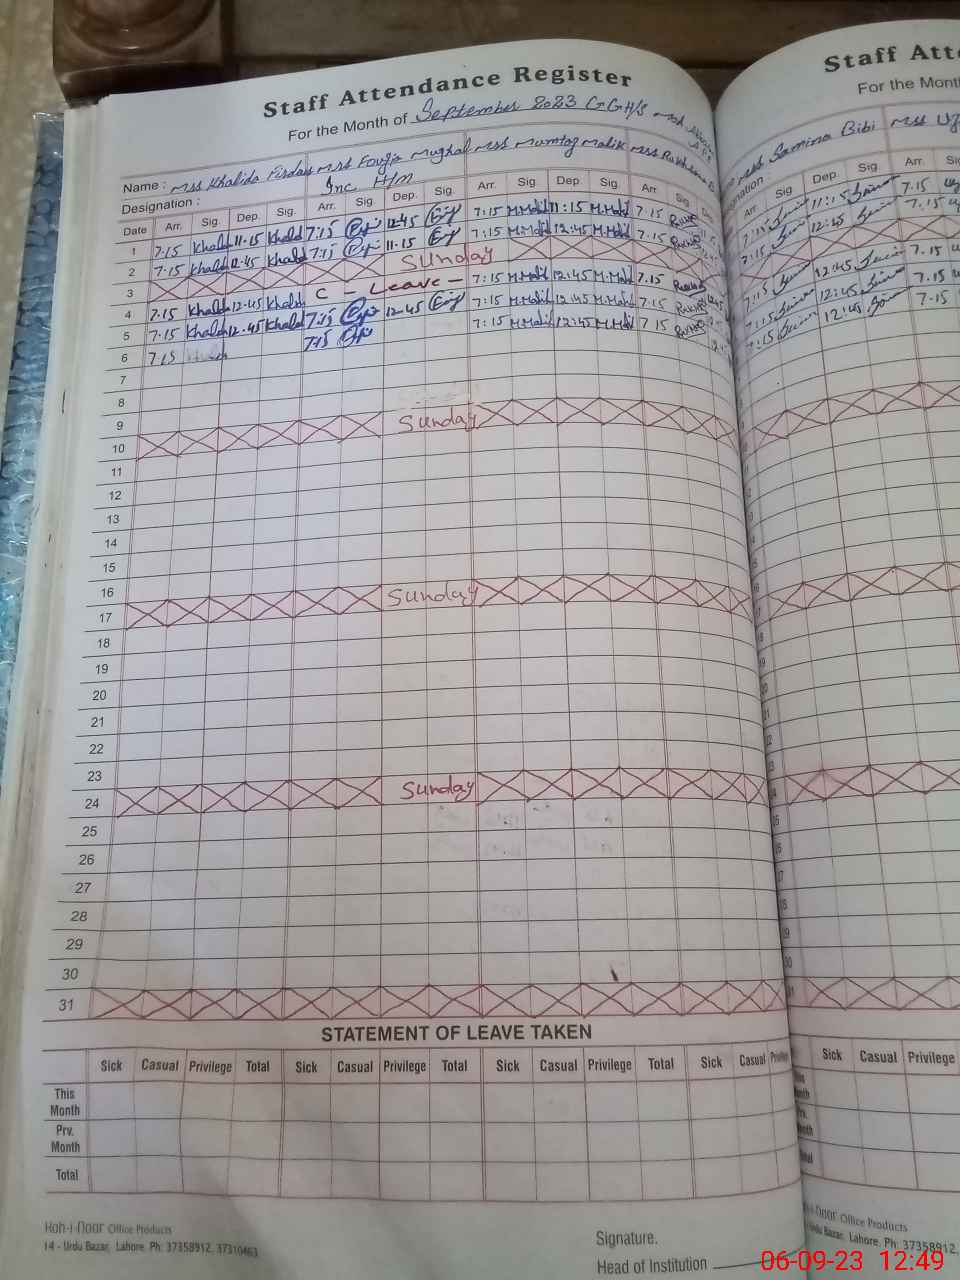 Staff Attendance Register
For the Month of September 2023 GGH/S
Staff Atte
For the Month
Name : Mss Khalida Firdaus Mrs Fouzia Mughal Mss Mumtaz Malik Mss Rukhsana
Mss Samina Bibi Mss Uz
Designation : Inc H/M
Date Arr. Sig. Dep. Sig. Arr. Sig. Dep. Sig. Arr. Sig. Dep. Sig. Arr. Sig. Dep.
Arr. Sig. Dep. Sig. Arr. Sig
1 7.15 Khalid 11.15 Khalid 7:15 12.45 7:15 M.Malik 11:15 M.Malik 7.15
7:15 11:15 7.15
2 7.15 Khalid 12.45 Khalid 7:15 11.15 7:15 M.Malik 12:45 M.Malik 7.15
7:15 12:45 7.15
3 Sunday
4 7.15 Khalid 12.45 Khalid C - Leave - 7:15 M.Malik 12:45 M.Malik 7.15
7:15 12:45 7.15
5 7.15 Khalid 12.45 Khalid 7:15 12.45 7:15 M.Malik 12:45 M.Malik 7.15
7:15 12:45 7.15
6 7.15 7:15 7:15 M.Malik 12:45 M.Malik 7 15
7:15 12:45 7.15
7
8
9
10 Sunday
11
12
13
14
15
16
17 Sunday
18
19
20
21
22
23
24 Sunday
25
26
27
28
29
30
31
STATEMENT OF LEAVE TAKEN
Sick Casual Privilege Total Sick Casual Privilege Total Sick Casual Privilege Total Sick Casual Privilege
Sick Casual Privilege
This Month
Prv. Month
Total
Koh-i-Noor Office Products
14 - Urdu Bazar, Lahore. Ph: 37358912, 37310463
Signature.
Head of Institution
h-i-Noor Office Products
Urdu Bazar, Lahore. Ph: 37358912,
06-09-23 12:49